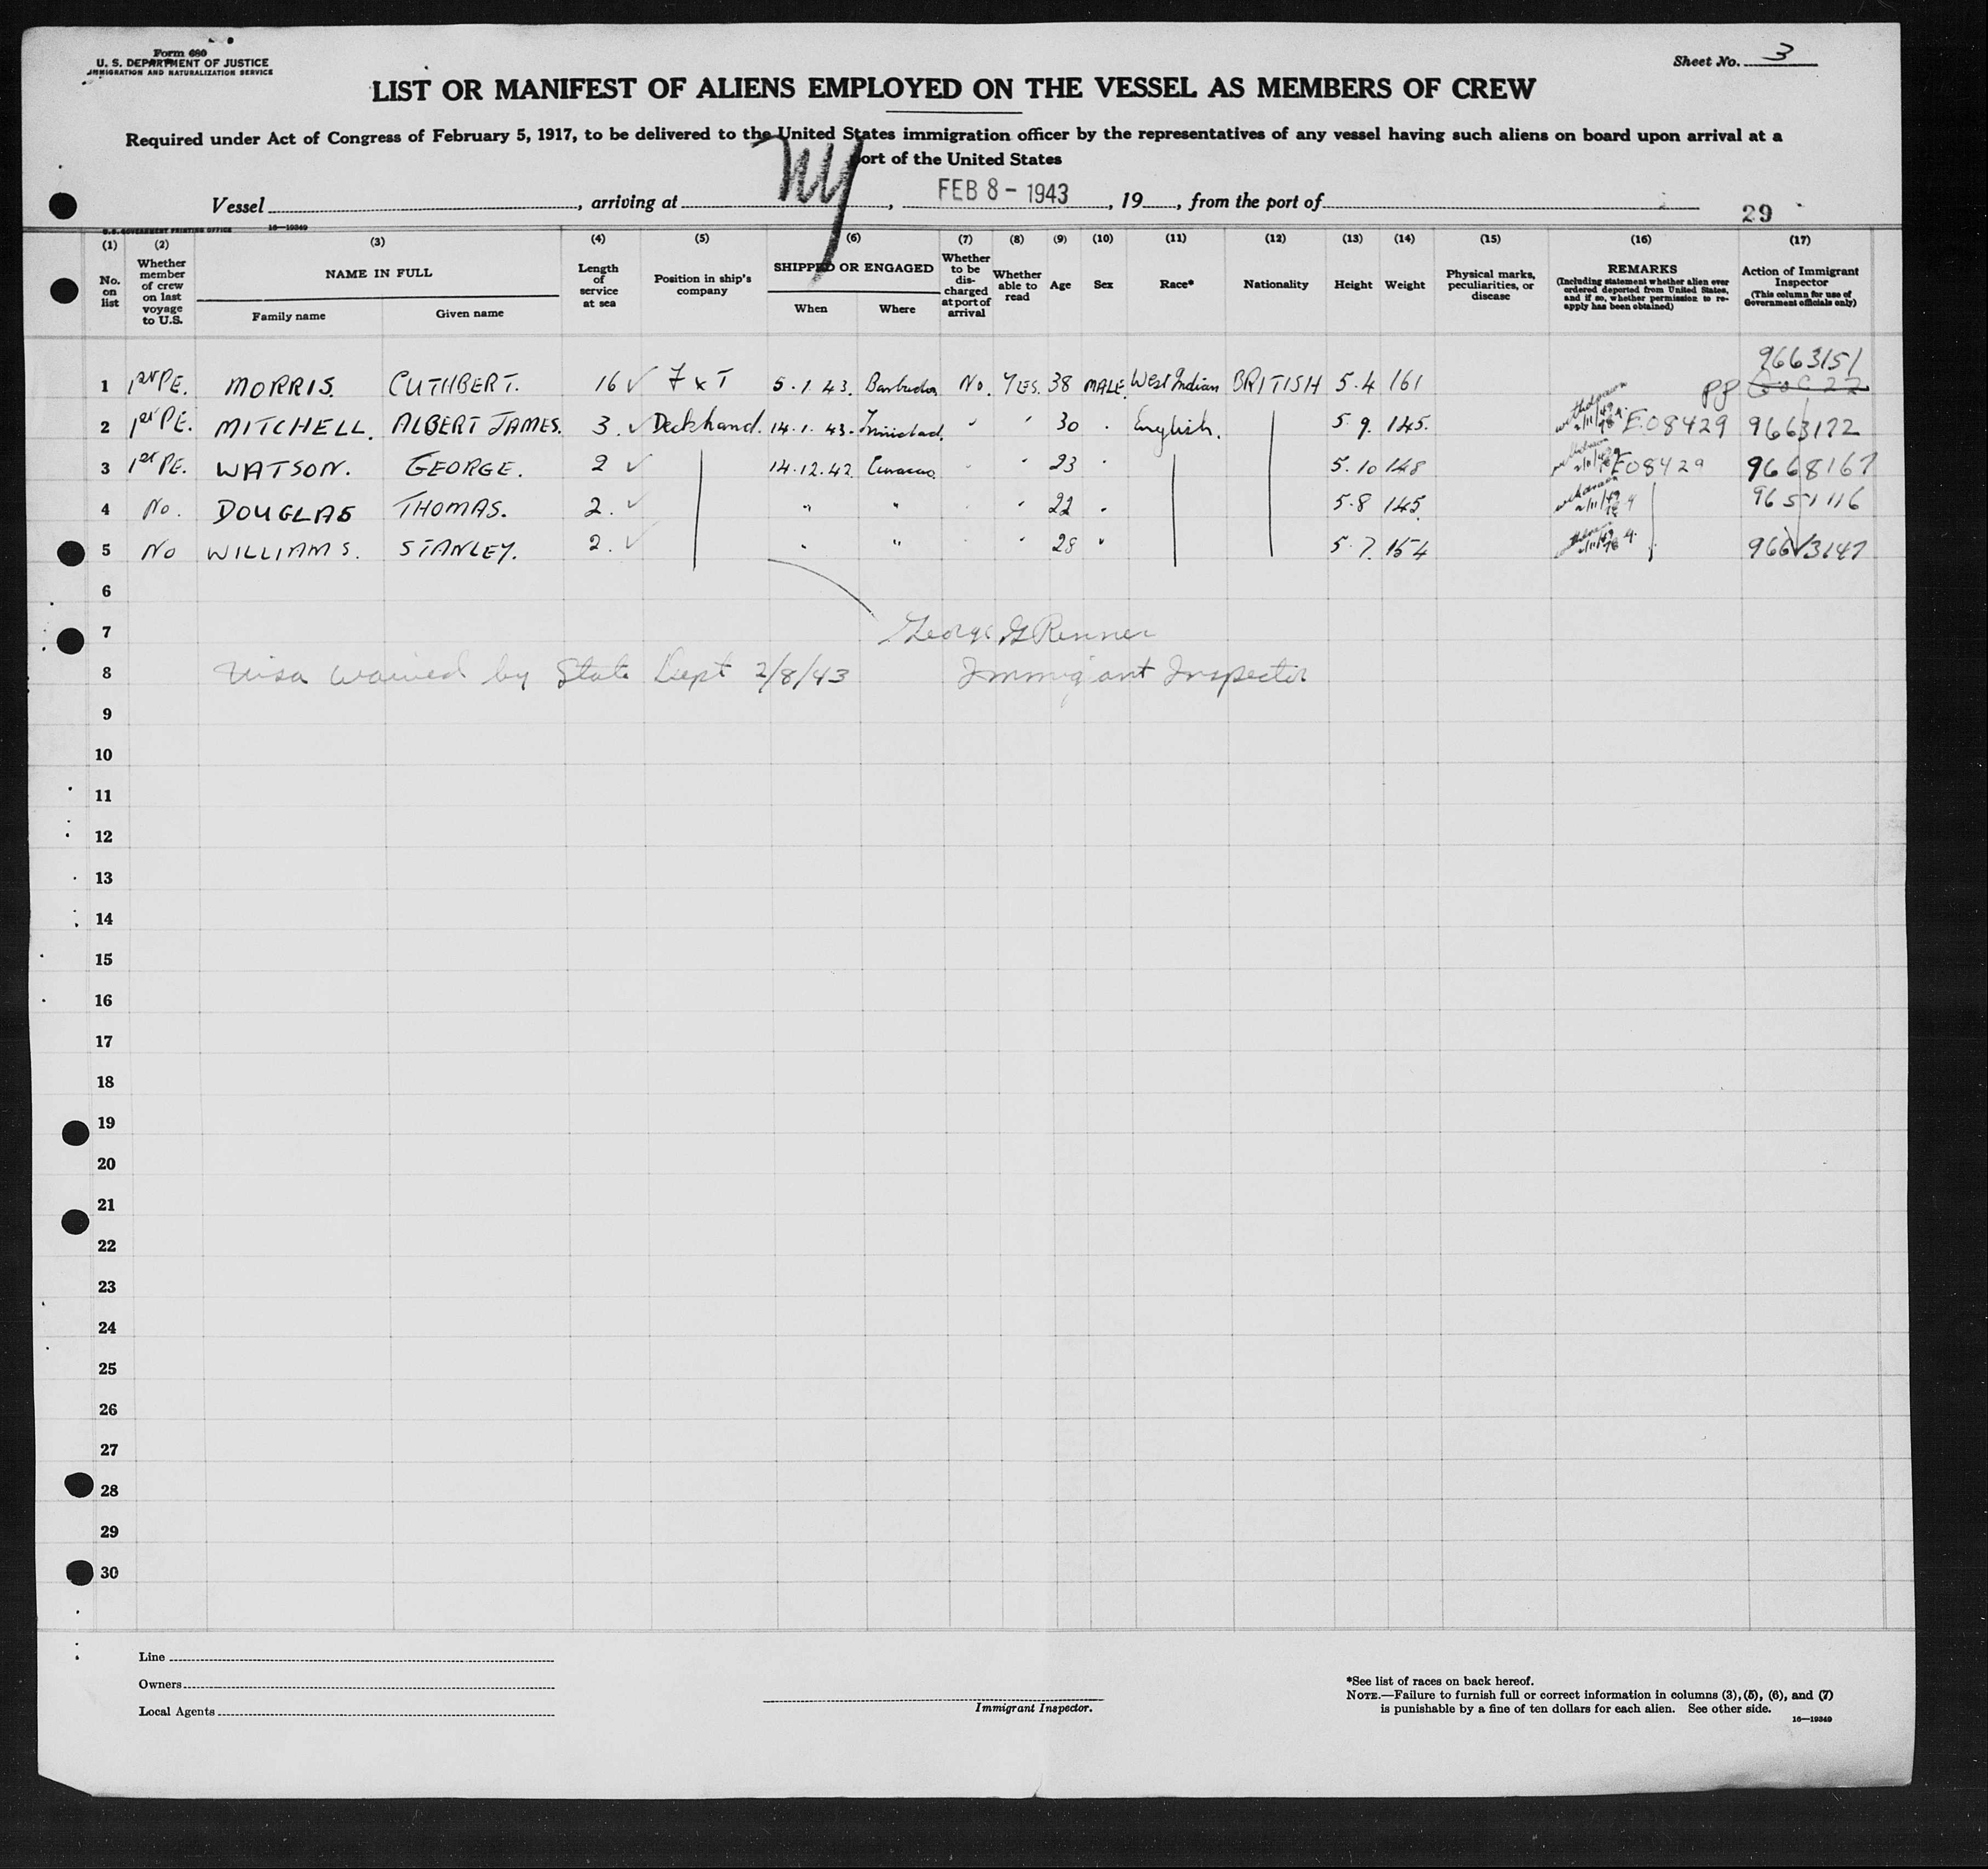 Form 680
U. S. DEPARTMENT OF JUSTICE
IMMIGRATION AND NATURALIZATION SERVICE
Sheet No. 3
LIST OR MANIFEST OF ALIENS EMPLOYED ON THE VESSEL AS MEMBERS OF CREW
Required under Act of Congress of February 5, 1917, to be delivered to the United States immigration officer by the representatives of any vessel having such aliens on board upon arrival at a
port of the United States
Vessel , arriving at NY , FEB 8 - 1943 , 19 , from the port of
29
U.S. GOVERNMENT PRINTING OFFICE 16—19349
(1) (2) (3) (4) (5) (6) (7) (8) (9) (10) (11) (12) (13) (14) (15) (16) (17)
No. on list
Whether member of crew on last voyage to U.S.
NAME IN FULL
Family name Given name
Length of service at sea
Position in ship's company
SHIPPED OR ENGAGED
When Where
Whether to be discharged at port of arrival
Whether able to read
Age
Sex
Race*
Nationality
Height
Weight
Physical marks, peculiarities, or disease
REMARKS
(Including statement whether alien ever ordered deported from United States, and if so, whether permission to reapply has been obtained)
Action of Immigrant Inspector
(This column for use of Government officials only)
9663151
1 1st PE. MORRIS. CUTHBERT. 16 ✓ F x T 5.1.43. Barbados No. YES. 38 MALE. West Indian BRITISH 5.4 161 PP
2 1st PE. MITCHELL. ALBERT JAMES. 3. ✓ Deckhand. 14.1.43. Trinidad. " " 30 " English. 5.9. 145. withdrawn 2/11/49 E08429 9663172
3 1st PE. WATSON. GEORGE. 2 ✓ 14.12.42. Curacao. " " 23 " 5.10 148 withdrawn 2/11/49 E08429 9668167
4 No. DOUGLAS THOMAS. 2. ✓ " " " " 22 " 5.8 145. withdrawn 2/11/49 9651116
5 No WILLIAMS. STANLEY. 2. ✓ " " " " 28 " 5.7. 154 2/11/49 9663147
6
7 George G Renner
8 Visa waived by State Dept 2/8/43 Immigrant Inspector
9
10
11
12
13
14
15
16
17
18
19
20
21
22
23
24
25
26
27
28
29
30
Line
Owners
Local Agents
Immigrant Inspector.
*See list of races on back hereof.
NOTE.—Failure to furnish full or correct information in columns (3), (5), (6), and (7)
is punishable by a fine of ten dollars for each alien. See other side.
16—19349